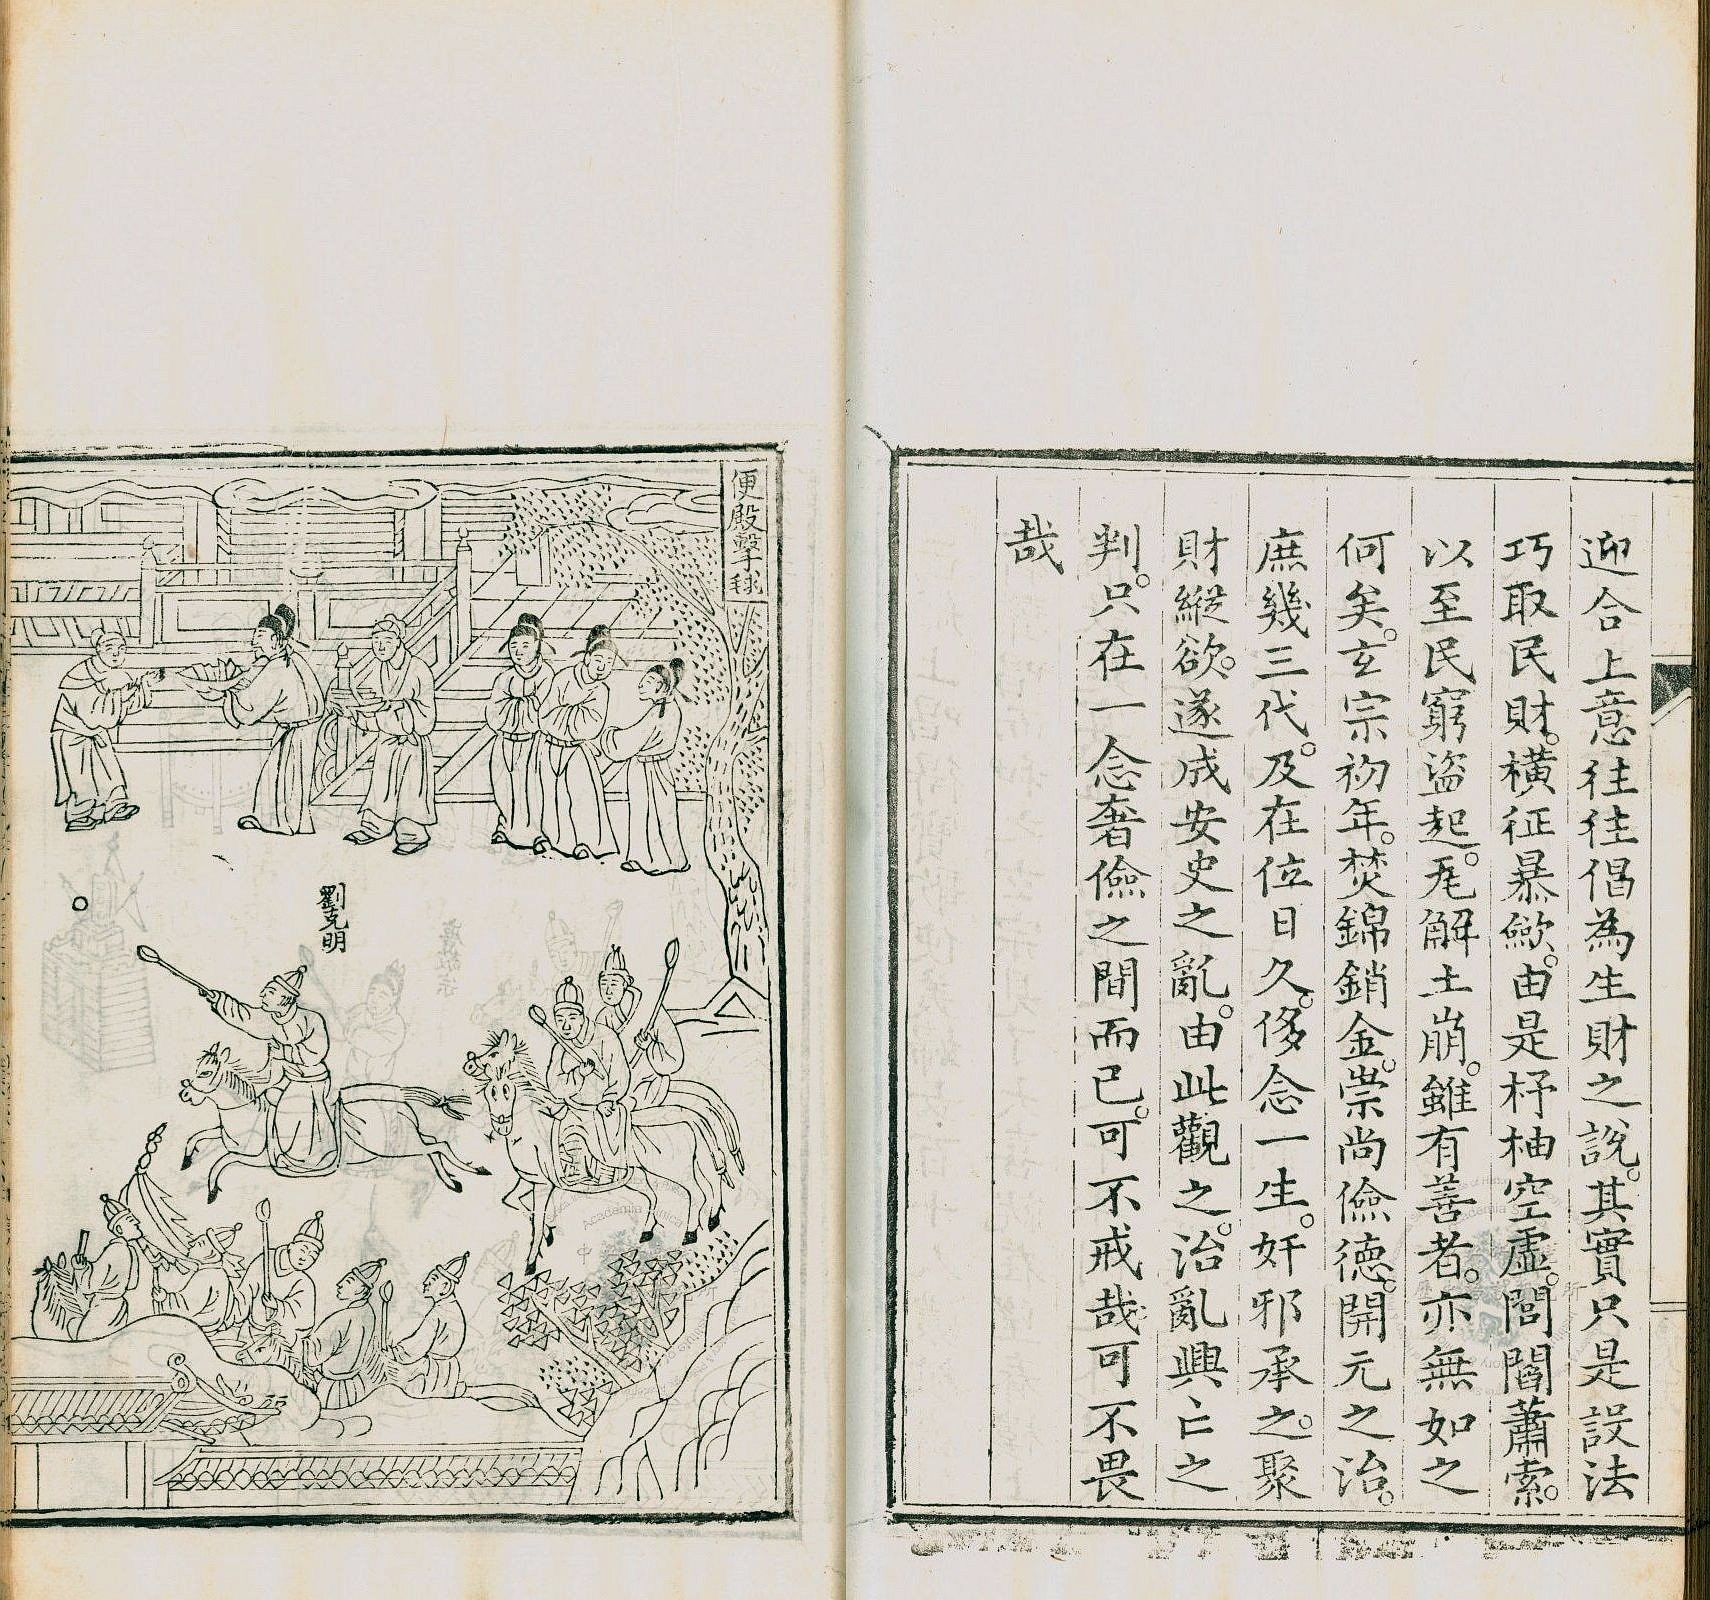 迎合上意往往倡為生財之說。其實只是設法
巧取民財。橫征暴斂。由是杼柚空虛。閭閻蕭索。
以至民窮盜起。瓦解土崩。雖有善者。亦無如之
何矣。玄宗初年。焚錦銷金。崇尚儉德。開元之治。
庶幾三代。及在位日久。侈念一生。奸邪承之。聚
財縱欲。遂成安史之亂。由此觀之。治亂興亡之
判。只在一念奢儉之間而已。可不戒哉可不畏
哉
便殿擊毬
劉克明